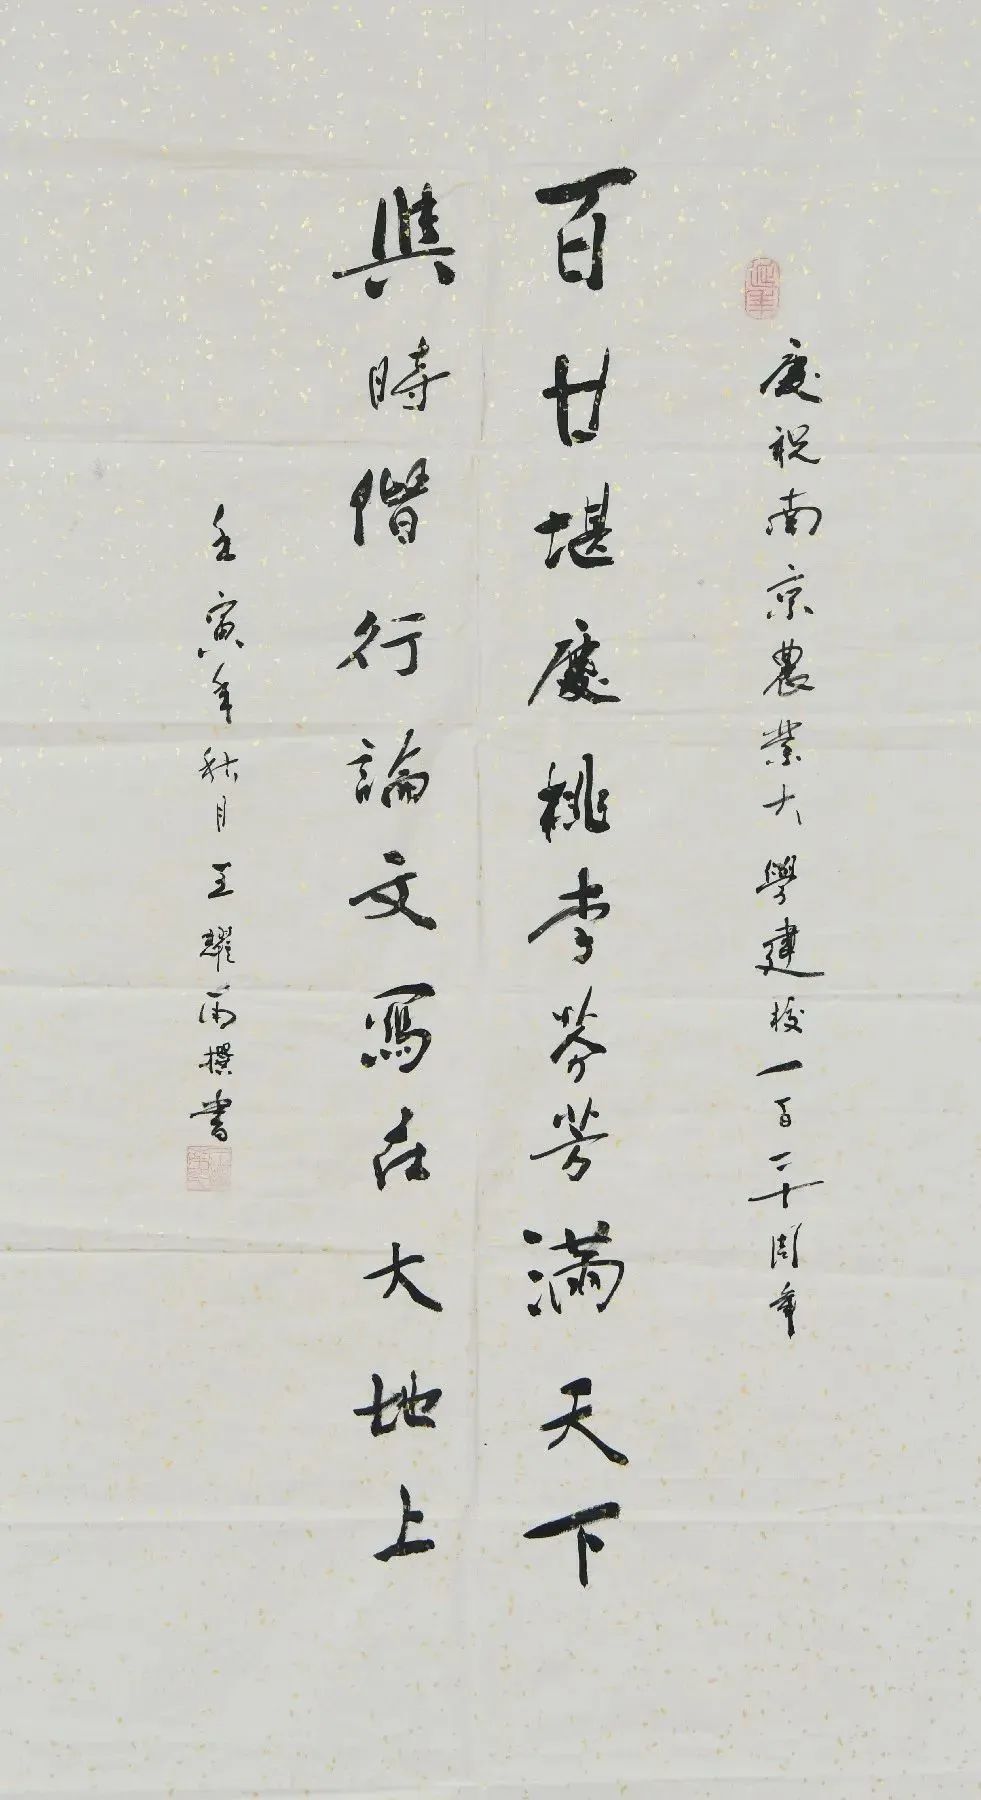 慶祝南京農業大學建校一百二十周年
百廿堪慶桃李芬芳滿天下
與時偕行論文寫在大地上
壬寅年秋月王耀南撰書